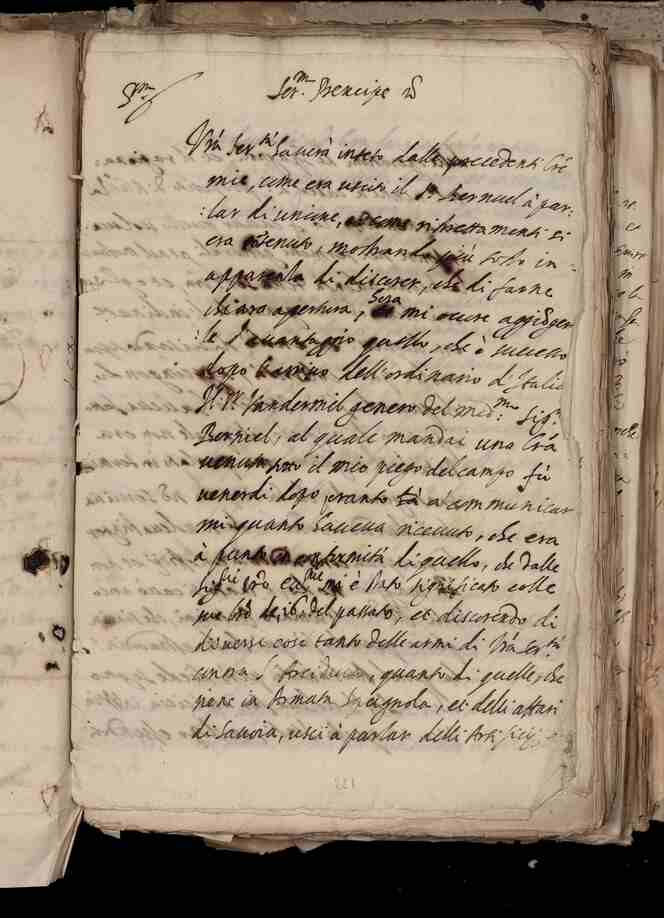 Ser.mo Prencipe
Vrã Ser.tà haverà inteso dalle precedenti lrẽ
mie, come era uscito il Sr. Bernuel à par:
:lar di unione, et come ristrettamente si
era tenuto, mostrando più tosto in:
apparenza di discorrer, che di farne
chiaro apertura, hora mi occorre aggionger:
:le d'avantaggio quello, che è successo
dopo l'arrivo dell'ordinario d'Italia
Il Sr. Vandermil genero del med.mo Sig.r
Berniel, al quale mandai una lrã
venuta sotto il mio piego del campo fù
venerdi dopo pranso à communicar
mi quanto haveva ricevuto, che era
à punto in conformità di quello, che dalle
mi è stato significato colle
sue lrẽ de 16. del passato, et discorendo di
diverse cose tanto delle armi di Vrã Ser.tà
contra l'Arciduca, quanto di quelle, che
pone in Armata Spagnola, et delli affari
di Savoia, uscì à parlar delli Artificij
221